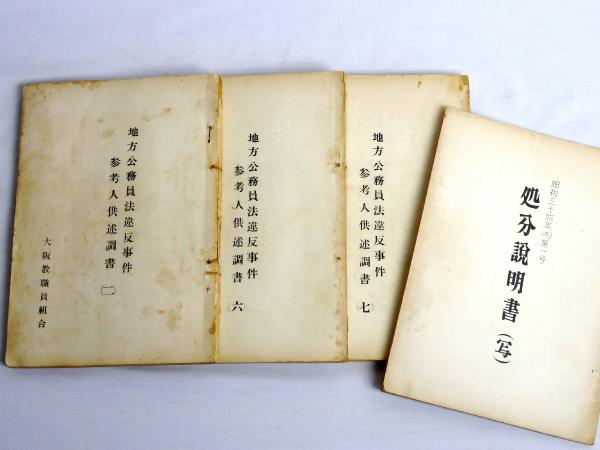 地方公務員法違反事件
参考人供述調書(二)
大阪教職員組合
地方公務員法違反事件
参考人供述調書(六)
地方公務員法違反事件
参考人供述調書(七)
昭和三十四年(不)第一号
処分説明書(写)